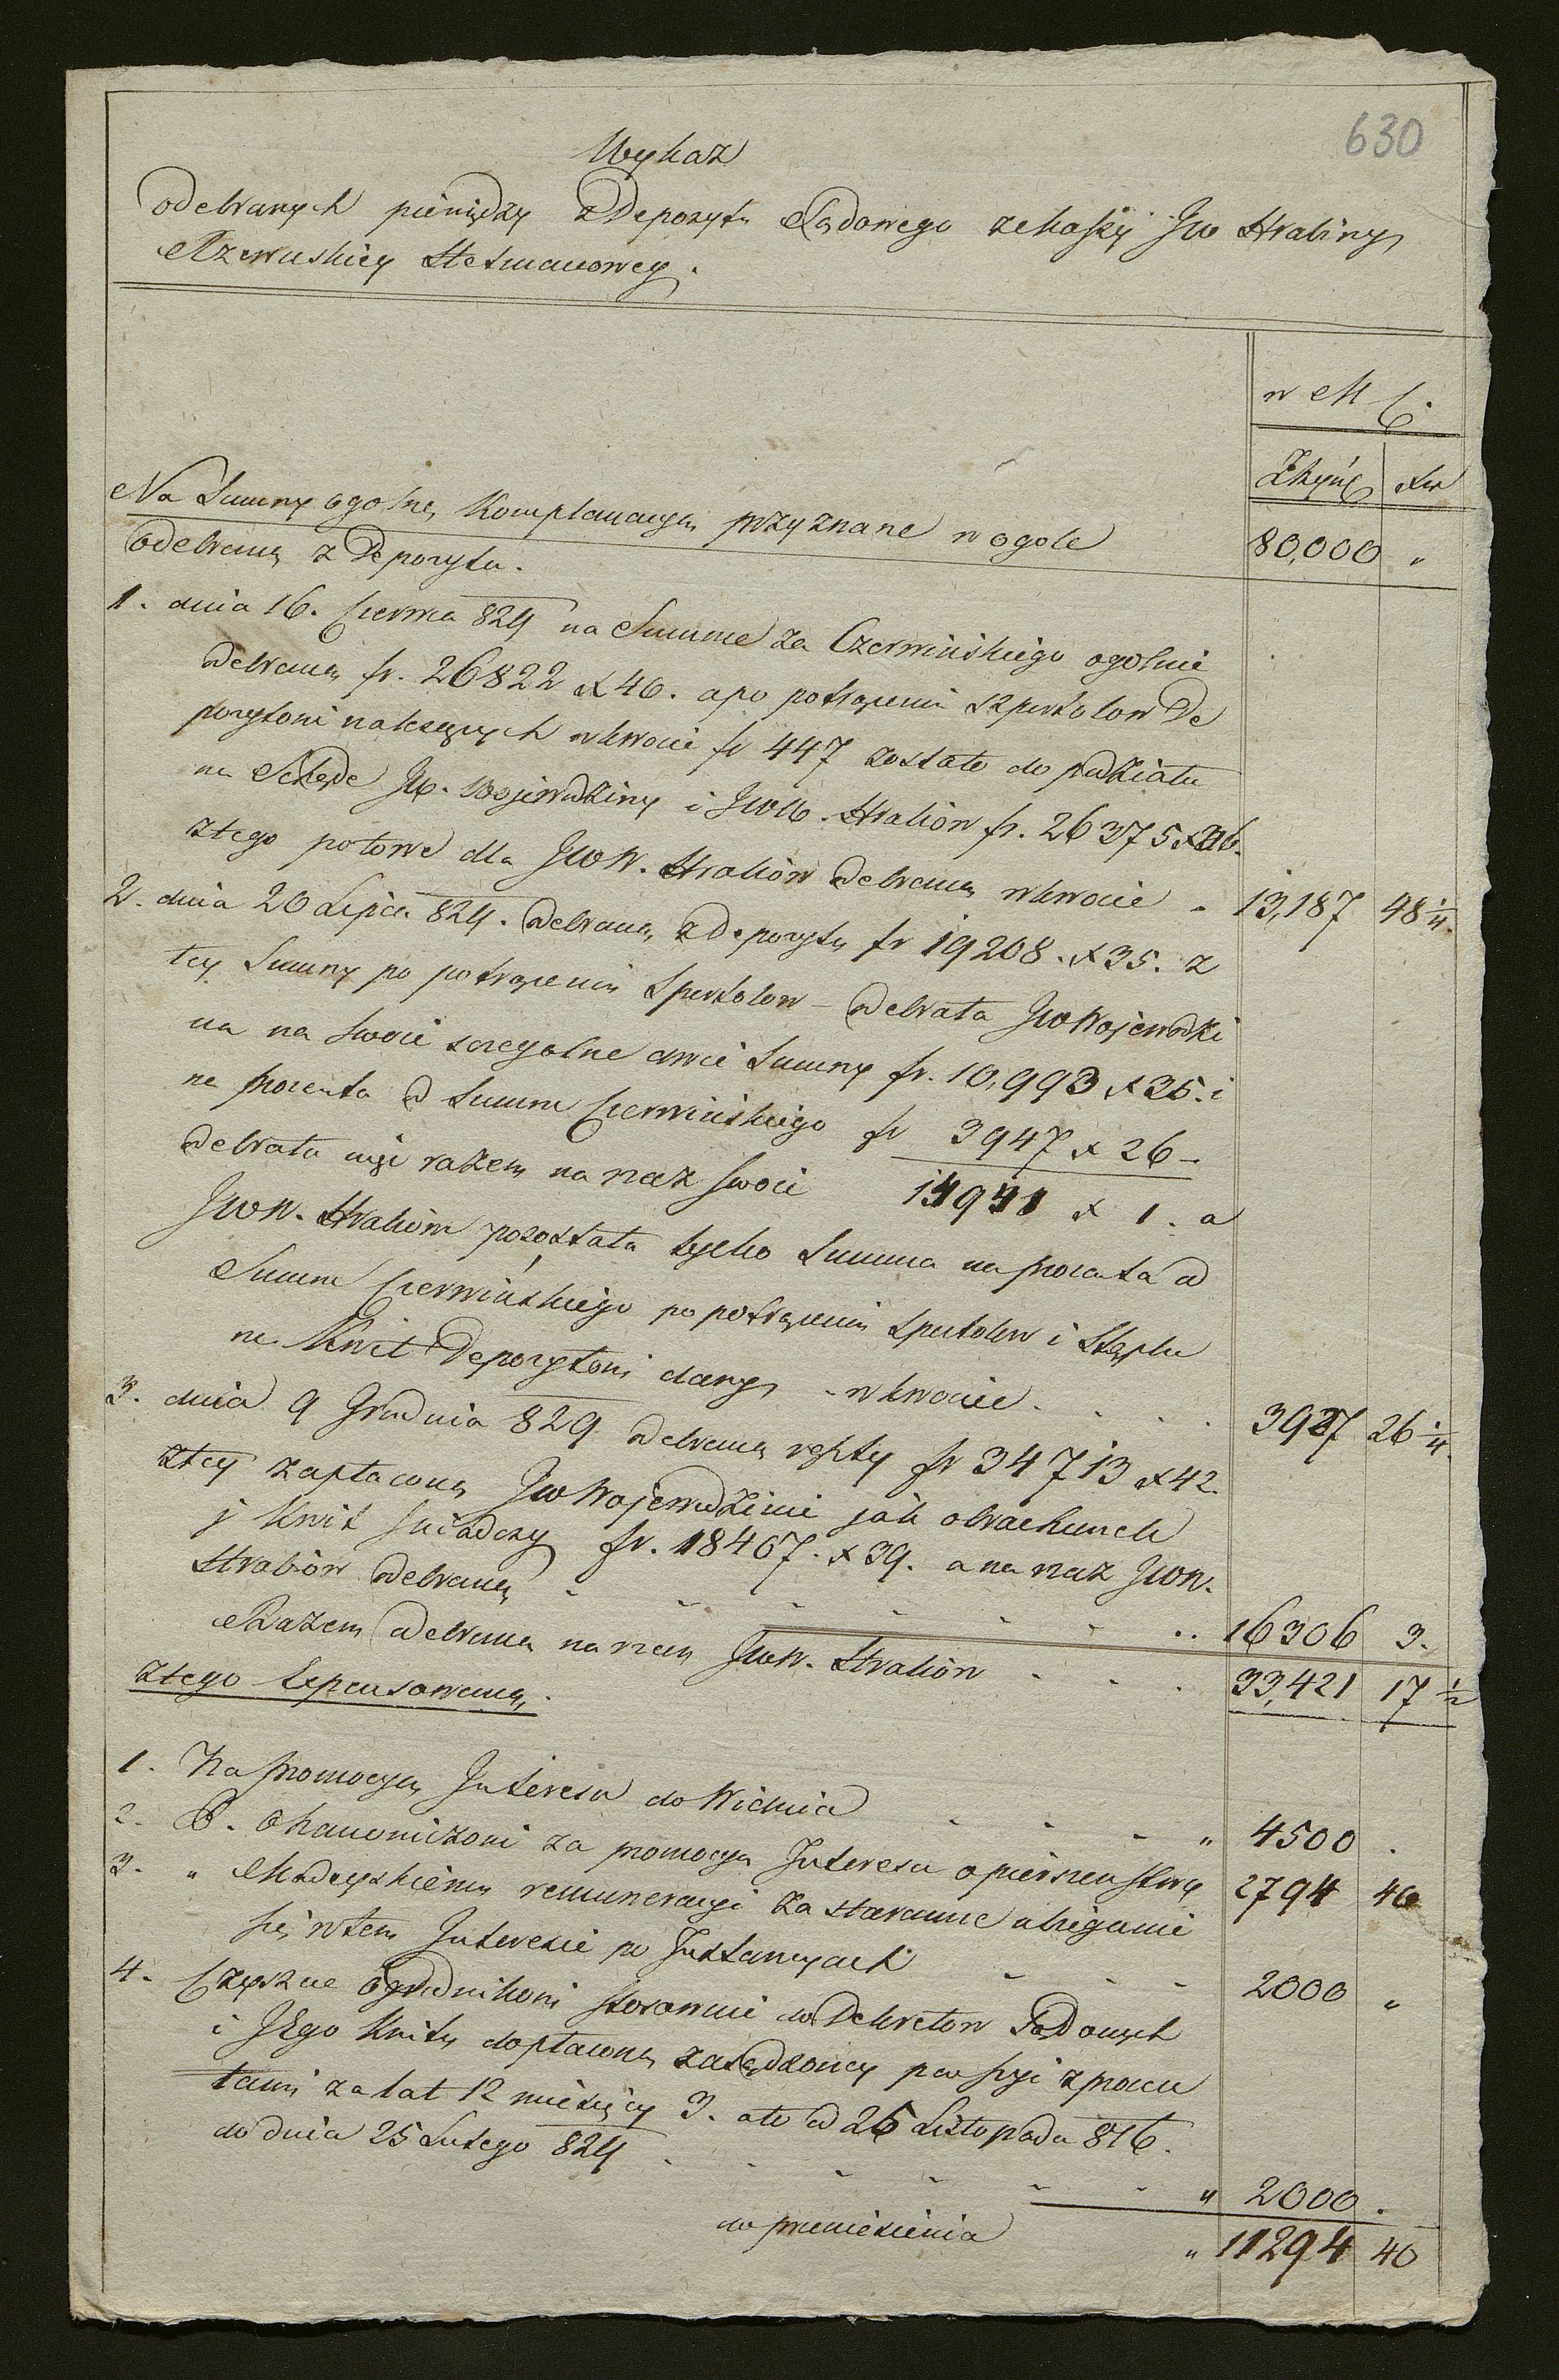 630
Wykaz
odebranych pieniędzy z Depozytu Sądowego z Massy Jw Hrabiny
Rzewuskiey Hetmanowey.
w M C.
Zł Ryńs xr
Na Summy ogolne, Komplanacyą przyznane w ogole 80,000 "
odebrano z Depozytu.
1. dnia 16. Czerwca 829 na Summe za Czerwińskiego ogolnie
odebrano fr. 26822 x 46. a po potrąceniu Szportolow De
pozytowi należących w kwocie fr 447 zostało do podziału
na Schedę Jw. Wojewodziny i JWW. Hrabiów fr. 26375 x 36.
z tego połowe dla JWW. Hrabiów odebrano w kwocie - 13,187 48 1/4.
2. dnia 20 Lipca 829. odebrano z Depozytu fr 19208. x 35. z
tey Summy po potrąceniu Sportolow - odebrała JW Wojewodzi
na na swoie szczegolne dwie Summy fr. 10,993 x 35. i
na procenta od Summ Czerwińskiego fr 3947 x 26 -
odebrała więc razem na rzecz swoię 14941 x 1. a
JWW. Hrabiom pozostała tylko Summa na procenta od
Summ Czerwińskiego po potrąceniu Sportolow i Stęplu
na Kwit Depozytowi dany - w kwocie . . . . 3927 26 1/4.
3. dnia 9 Grudnia 829 odebrano reszty fr 34713 x 42.
z tey zapłacono JW Wojewodzinie jak obrachunek
i Kwit świadczy fr. 18407. x 39. a na rzecz JWW.
Hrabiów odebrano - - - - - - .. 16306 3.
Razem odebrano na rzecz JWW. Hrabiów - - . 33,421 17 1/2
z tego Expensowano.
1. Na promocyą Interesu do Widnia - - - " 4500 .
2. P. Ohanowiczowi za promocyą Interesu o pierszeństwo 2794 40
3. " Madeyskiemu remuneracyi za staranne ubiganie
się w tem Interesie po Instancyach - - - 2000 "
4. Czyszne Ogrodnikowi stosownie do Dekretow Sądowych
i JEgo Kwitu dopłacono zasądzoney pensyi z procen
tami za lat 12 miesięcy 3. ato od 25 Listopada 816.
do dnia 25 Lutego 829 . - - - - - " 2000 .
do przeniesienia " 11294 40